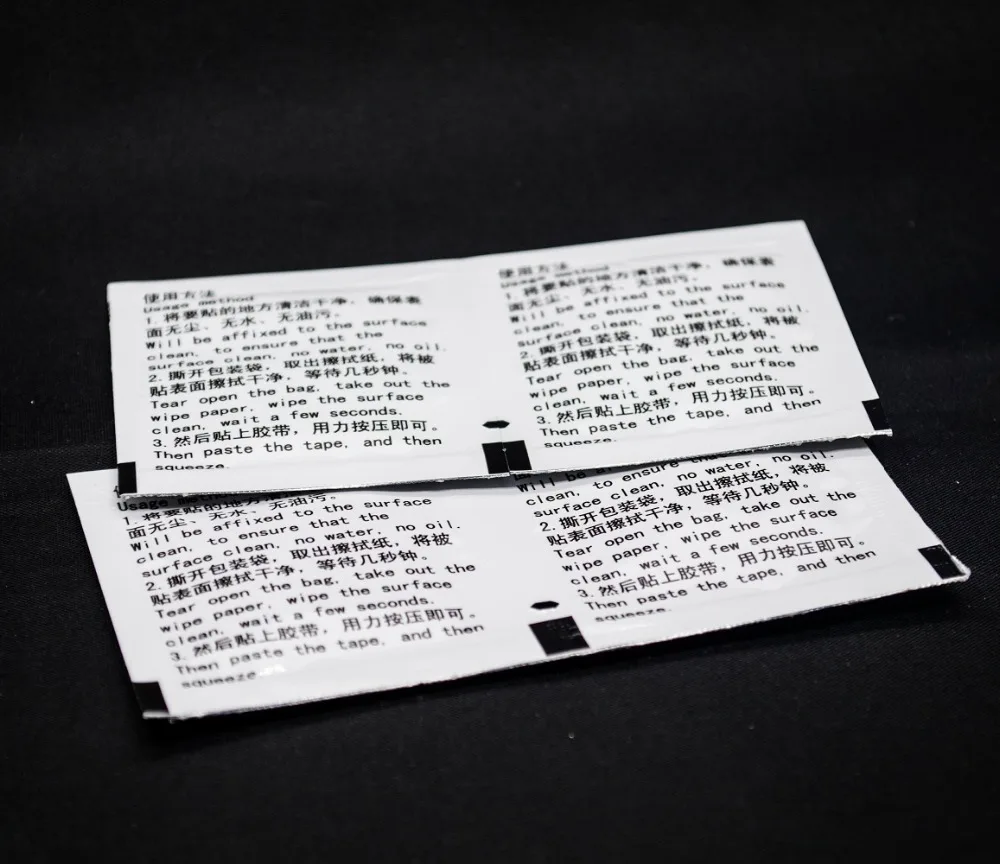 使用方法
Usage method
1. 将要贴的地方清洁干净, 确保表
面无尘、无水、无油污。
Will be affixed to the surface
clean, to ensure that the
surface clean, no water, no oil.
2. 撕开包装袋, 取出擦拭纸, 将被
贴表面擦拭干净, 等待几秒钟。
Tear open the bag, take out the
wipe paper, wipe the surface
clean, wait a few seconds.
3. 然后贴上胶带, 用力按压即可。
Then paste the tape, and then
squeeze.
使用方法
Usage method
1. 将要贴的地方清洁干净, 确保表
面无尘、无水、无油污。
Will be affixed to the surface
clean, to ensure that the
surface clean, no water, no oil.
2. 撕开包装袋, 取出擦拭纸, 将被
贴表面擦拭干净, 等待几秒钟。
Tear open the bag, take out the
wipe paper, wipe the surface
clean, wait a few seconds.
3. 然后贴上胶带, 用力按压即可。
Then paste the tape, and then
squeeze.
Usage
1. 将要贴的地方
面无尘、无水、无油污。
Will be affixed to the surface
clean, to ensure that the
surface clean, no water, no oil.
2. 撕开包装袋, 取出擦拭纸, 将被
贴表面擦拭干净, 等待几秒钟。
Tear open the bag, take out the
wipe paper, wipe the surface
clean, wait a few seconds.
3. 然后贴上胶带, 用力按压即可。
Then paste the tape, and then
squeeze
Will be
clean, to ensure
surface clean, no water, no oil.
2. 撕开包装袋, 取出擦拭纸, 将被
贴表面擦拭干净, 等待几秒钟。
Tear open the bag, take out the
wipe paper, wipe the surface
clean, wait a few seconds.
3. 然后贴上胶带, 用力按压即可。
Then paste the tape, and then
squeeze.